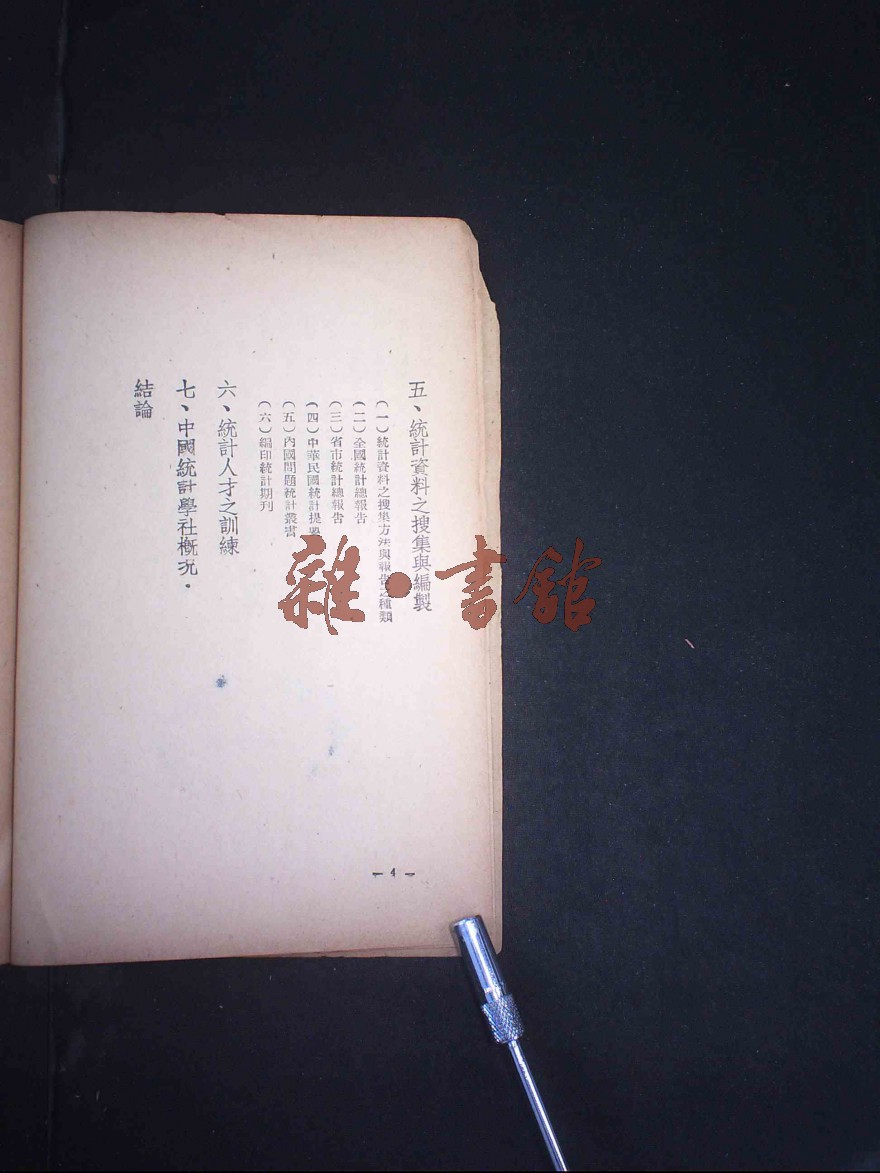 五、統計資料之搜集與編製
（一）統計資料之搜集方法與報告之種類
（二）全國統計總報告
（三）省市統計總報告
（四）中華民國統計提要
（五）內國問題統計叢書
（六）編印統計期刊
六、統計人才之訓練
七、中國統計學社概况．
結論
－4－
雜·書館